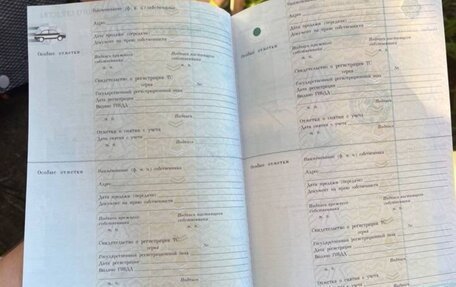 Наименование (ф. и. о.) собственника
Адрес
Дата продажи (передачи)
Документ на право собственности
Особые отметки
Подпись прежнего собственника
Подпись настоящего собственника
М. П.
М. П.
Свидетельство о регистрации ТС
серия
№
Государственный регистрационный знак
Дата регистрации
Выдано ГИБДД
М. П.
Подпись
Отметка о снятии с учета
Дата снятия с учета
М. П.
Подпись
Особые отметки
Наименование (ф. и. о.) собственника
Адрес
Дата продажи (передачи)
Документ на право собственности
Подпись прежнего собственника
Подпись настоящего собственника
М. П.
М. П.
Свидетельство о регистрации ТС
серия
№
Государственный регистрационный знак
Дата регистрации
Выдано ГИБДД
Подпись
Адрес
Дата продажи (передачи)
Документ на право собственности
Особые отметки
Подпись прежнего собственника
Подпись настоящего собственника
М. П.
М. П.
Свидетельство о регистрации ТС
серия
№
Государственный регистрационный знак
Дата регистрации
Выдано ГИБДД
М. П.
Подпись
Отметка о снятии с учета
Дата снятия с учета
М. П.
Подпись
Особые отметки
Наименование (ф. и. о.) собственника
Адрес
Дата продажи (передачи)
Документ на право собственности
Подпись прежнего собственника
Подпись настоящего собственника
М. П.
М. П.
Свидетельство о регистрации ТС
серия
№
Государственный регистрационный знак
Дата регистрации
Выдано ГИБДД
М. П.
Подпись
Отметка о снятии с учета
Дата снятия с учета